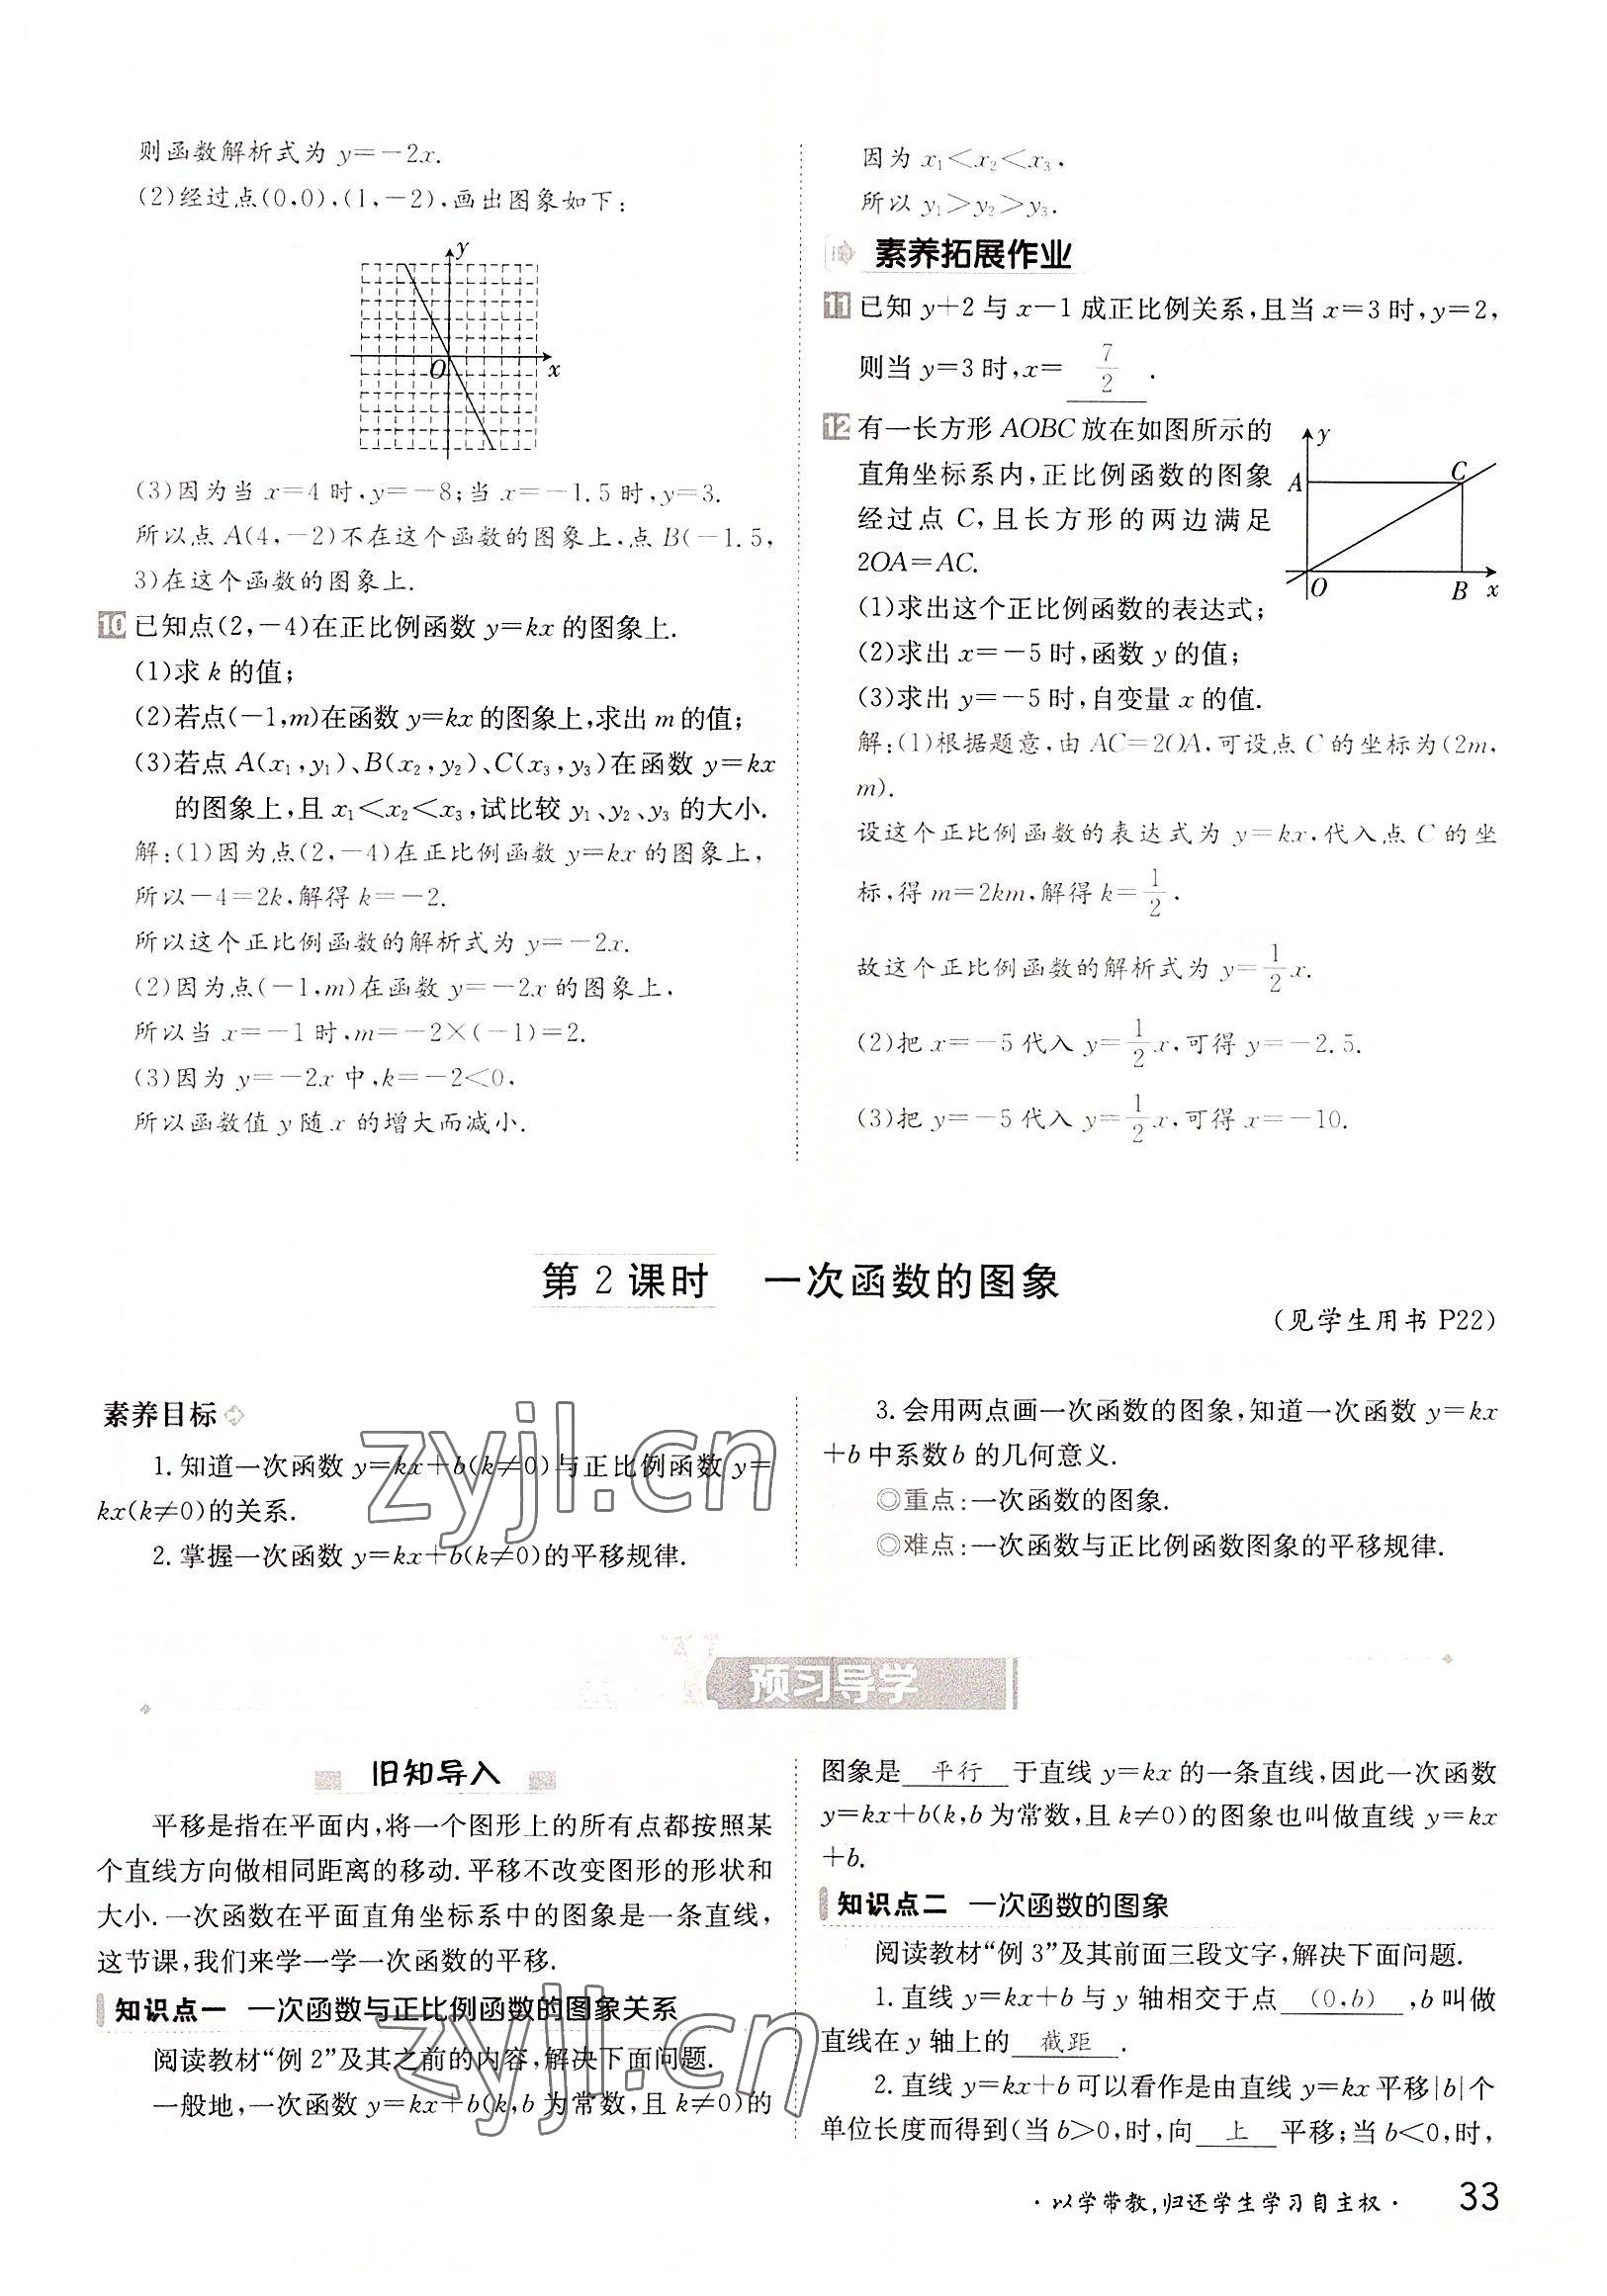 则函数解析式为 y=-2x.
(2)经过点(0,0),(1,-2),画出图象如下:
y
O
x
(3)因为当 x=4 时,y=-8;当 x=-1.5 时,y=3.
所以点 A(4,-2)不在这个函数的图象上,点 B(-1.5,
3)在这个函数的图象上.
10 已知点(2,-4)在正比例函数 y=kx 的图象上.
(1)求 k 的值;
(2)若点(-1,m)在函数 y=kx 的图象上,求出 m 的值;
(3)若点 A(x₁,y₁)、B(x₂,y₂)、C(x₃,y₃)在函数 y=kx
的图象上,且 x₁<x₂<x₃,试比较 y₁、y₂、y₃ 的大小.
解:(1)因为点(2,-4)在正比例函数 y=kx 的图象上,
所以-4=2k,解得 k=-2.
所以这个正比例函数的解析式为 y=-2x.
(2)因为点(-1,m)在函数 y=-2x 的图象上,
所以当 x=-1 时,m=-2×(-1)=2.
(3)因为 y=-2x 中,k=-2<0,
所以函数值 y 随 x 的增大而减小.
因为 x₁<x₂<x₃,
所以 y₁>y₂>y₃.
素养拓展作业
11 已知 y+2 与 x-1 成正比例关系,且当 x=3 时,y=2,
则当 y=3 时,x= 7/2 .
12 有一长方形 AOBC 放在如图所示的
直角坐标系内,正比例函数的图象
经过点 C,且长方形的两边满足
2OA=AC.
y
A
C
O
B
x
(1)求出这个正比例函数的表达式;
(2)求出 x=-5 时,函数 y 的值;
(3)求出 y=-5 时,自变量 x 的值.
解:(1)根据题意,由 AC=2OA,可设点 C 的坐标为(2m,
m).
设这个正比例函数的表达式为 y=kx,代入点 C 的坐
标,得 m=2km,解得 k=1/2.
故这个正比例函数的解析式为 y=1/2x.
(2)把 x=-5 代入 y=1/2x,可得 y=-2.5.
(3)把 y=-5 代入 y=1/2x,可得 x=-10.
第 2 课时 一次函数的图象
(见学生用书 P22)
素养目标
1. 知道一次函数 y=kx+b(k≠0)与正比例函数 y=
kx(k≠0)的关系.
2. 掌握一次函数 y=kx+b(k≠0)的平移规律.
3. 会用两点画一次函数的图象,知道一次函数 y=kx
+b 中系数 b 的几何意义.
◎重点:一次函数的图象.
◎难点:一次函数与正比例函数图象的平移规律.
zyjl.cn
预习导学
旧知导入
平移是指在平面内,将一个图形上的所有点都按照某
个直线方向做相同距离的移动.平移不改变图形的形状和
大小.一次函数在平面直角坐标系中的图象是一条直线,
这节课,我们来学一学一次函数的平移.
知识点一 一次函数与正比例函数的图象关系
阅读教材“例 2”及其之前的内容,解决下面问题.
一般地,一次函数 y=kx+b(k,b 为常数,且 k≠0)的
zyjl.cn
图象是 平行 于直线 y=kx 的一条直线,因此一次函数
y=kx+b(k,b 为常数,且 k≠0)的图象也叫做直线 y=kx
+b.
知识点二 一次函数的图象
阅读教材“例 3”及其前面三段文字,解决下面问题.
1. 直线 y=kx+b 与 y 轴相交于点 (0,b) ,b 叫做
直线在 y 轴上的 截距 .
2. 直线 y=kx+b 可以看作是由直线 y=kx 平移|b|个
单位长度而得到(当 b>0,时,向 上 平移;当 b<0,时,
·以学带教,归还学生学习自主权·
33